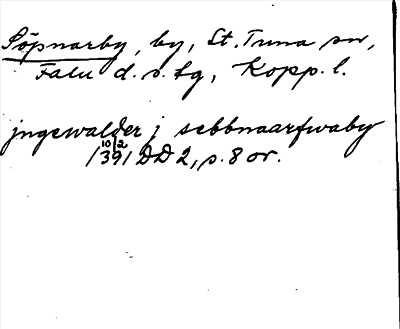 Söpnarby, by, St. Tuna sn,
Falu d. s. fg, Kopp. l.
jngewalder j sebbnaarfwaby
10/2
1391 DD 2, s. 8 or.